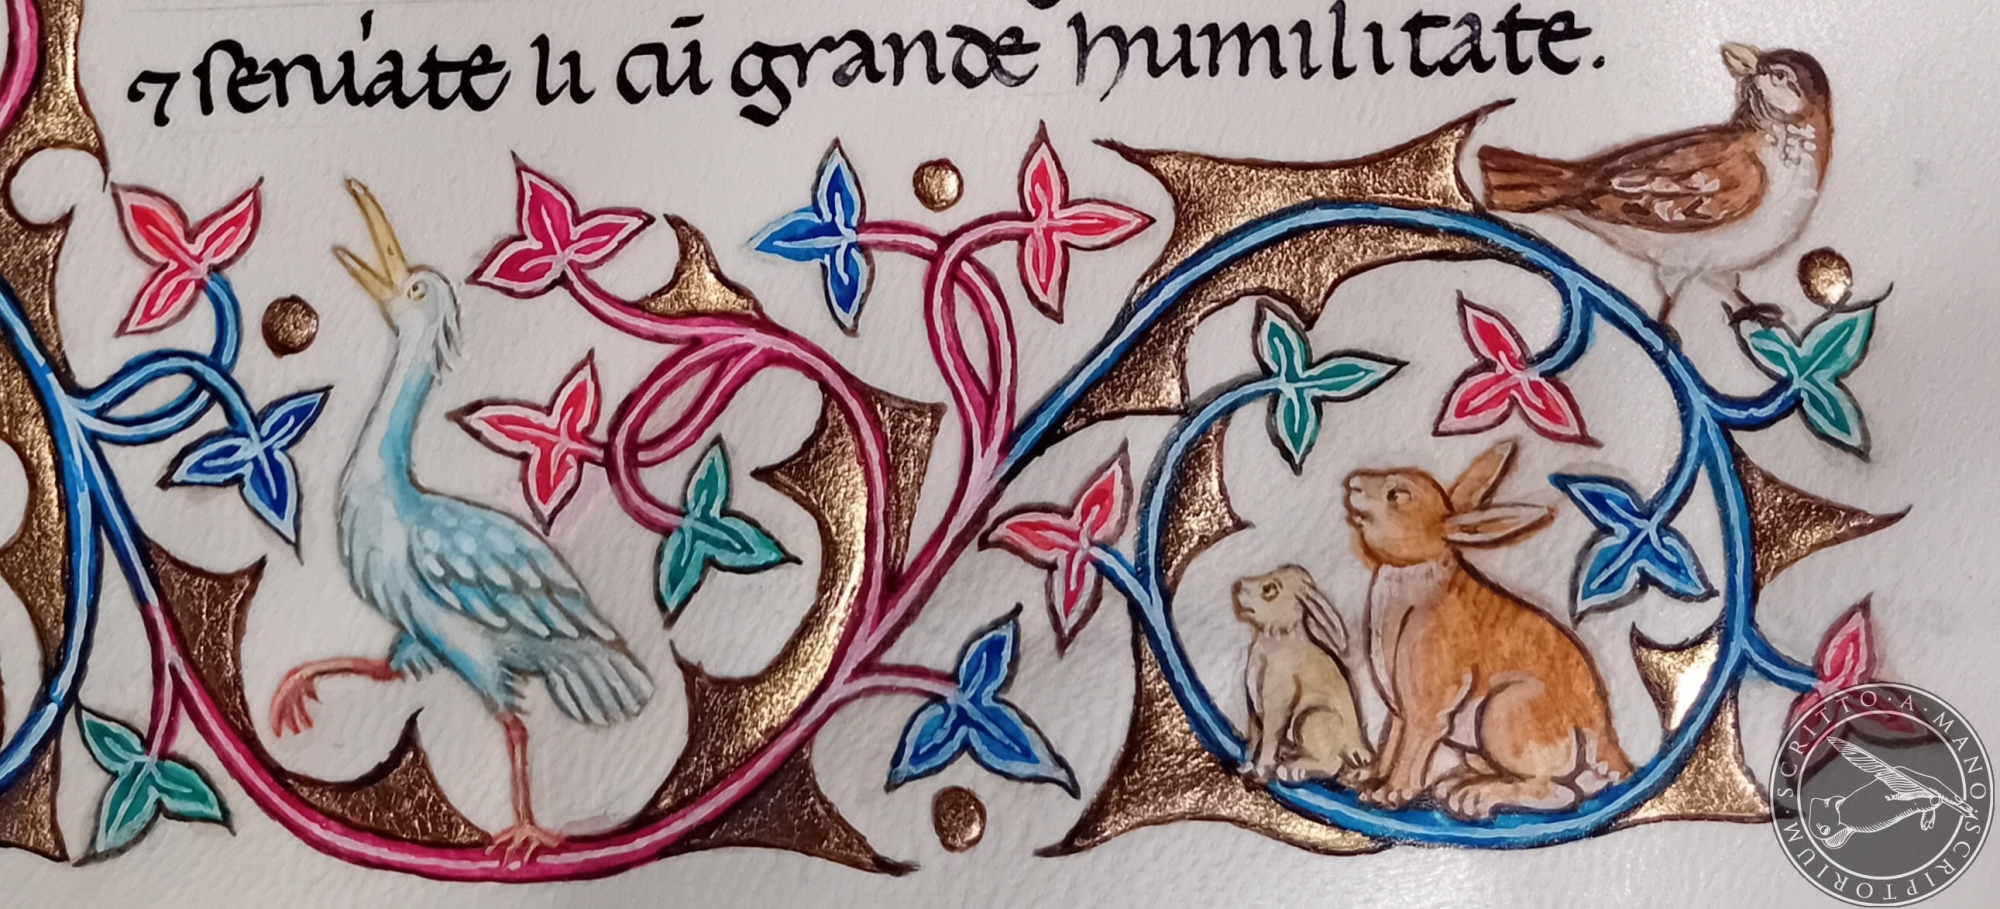 ⁊ ſeruíate li cū grande humilitate.
SCRITTO·A·MANO·SCRIPTORIUM·